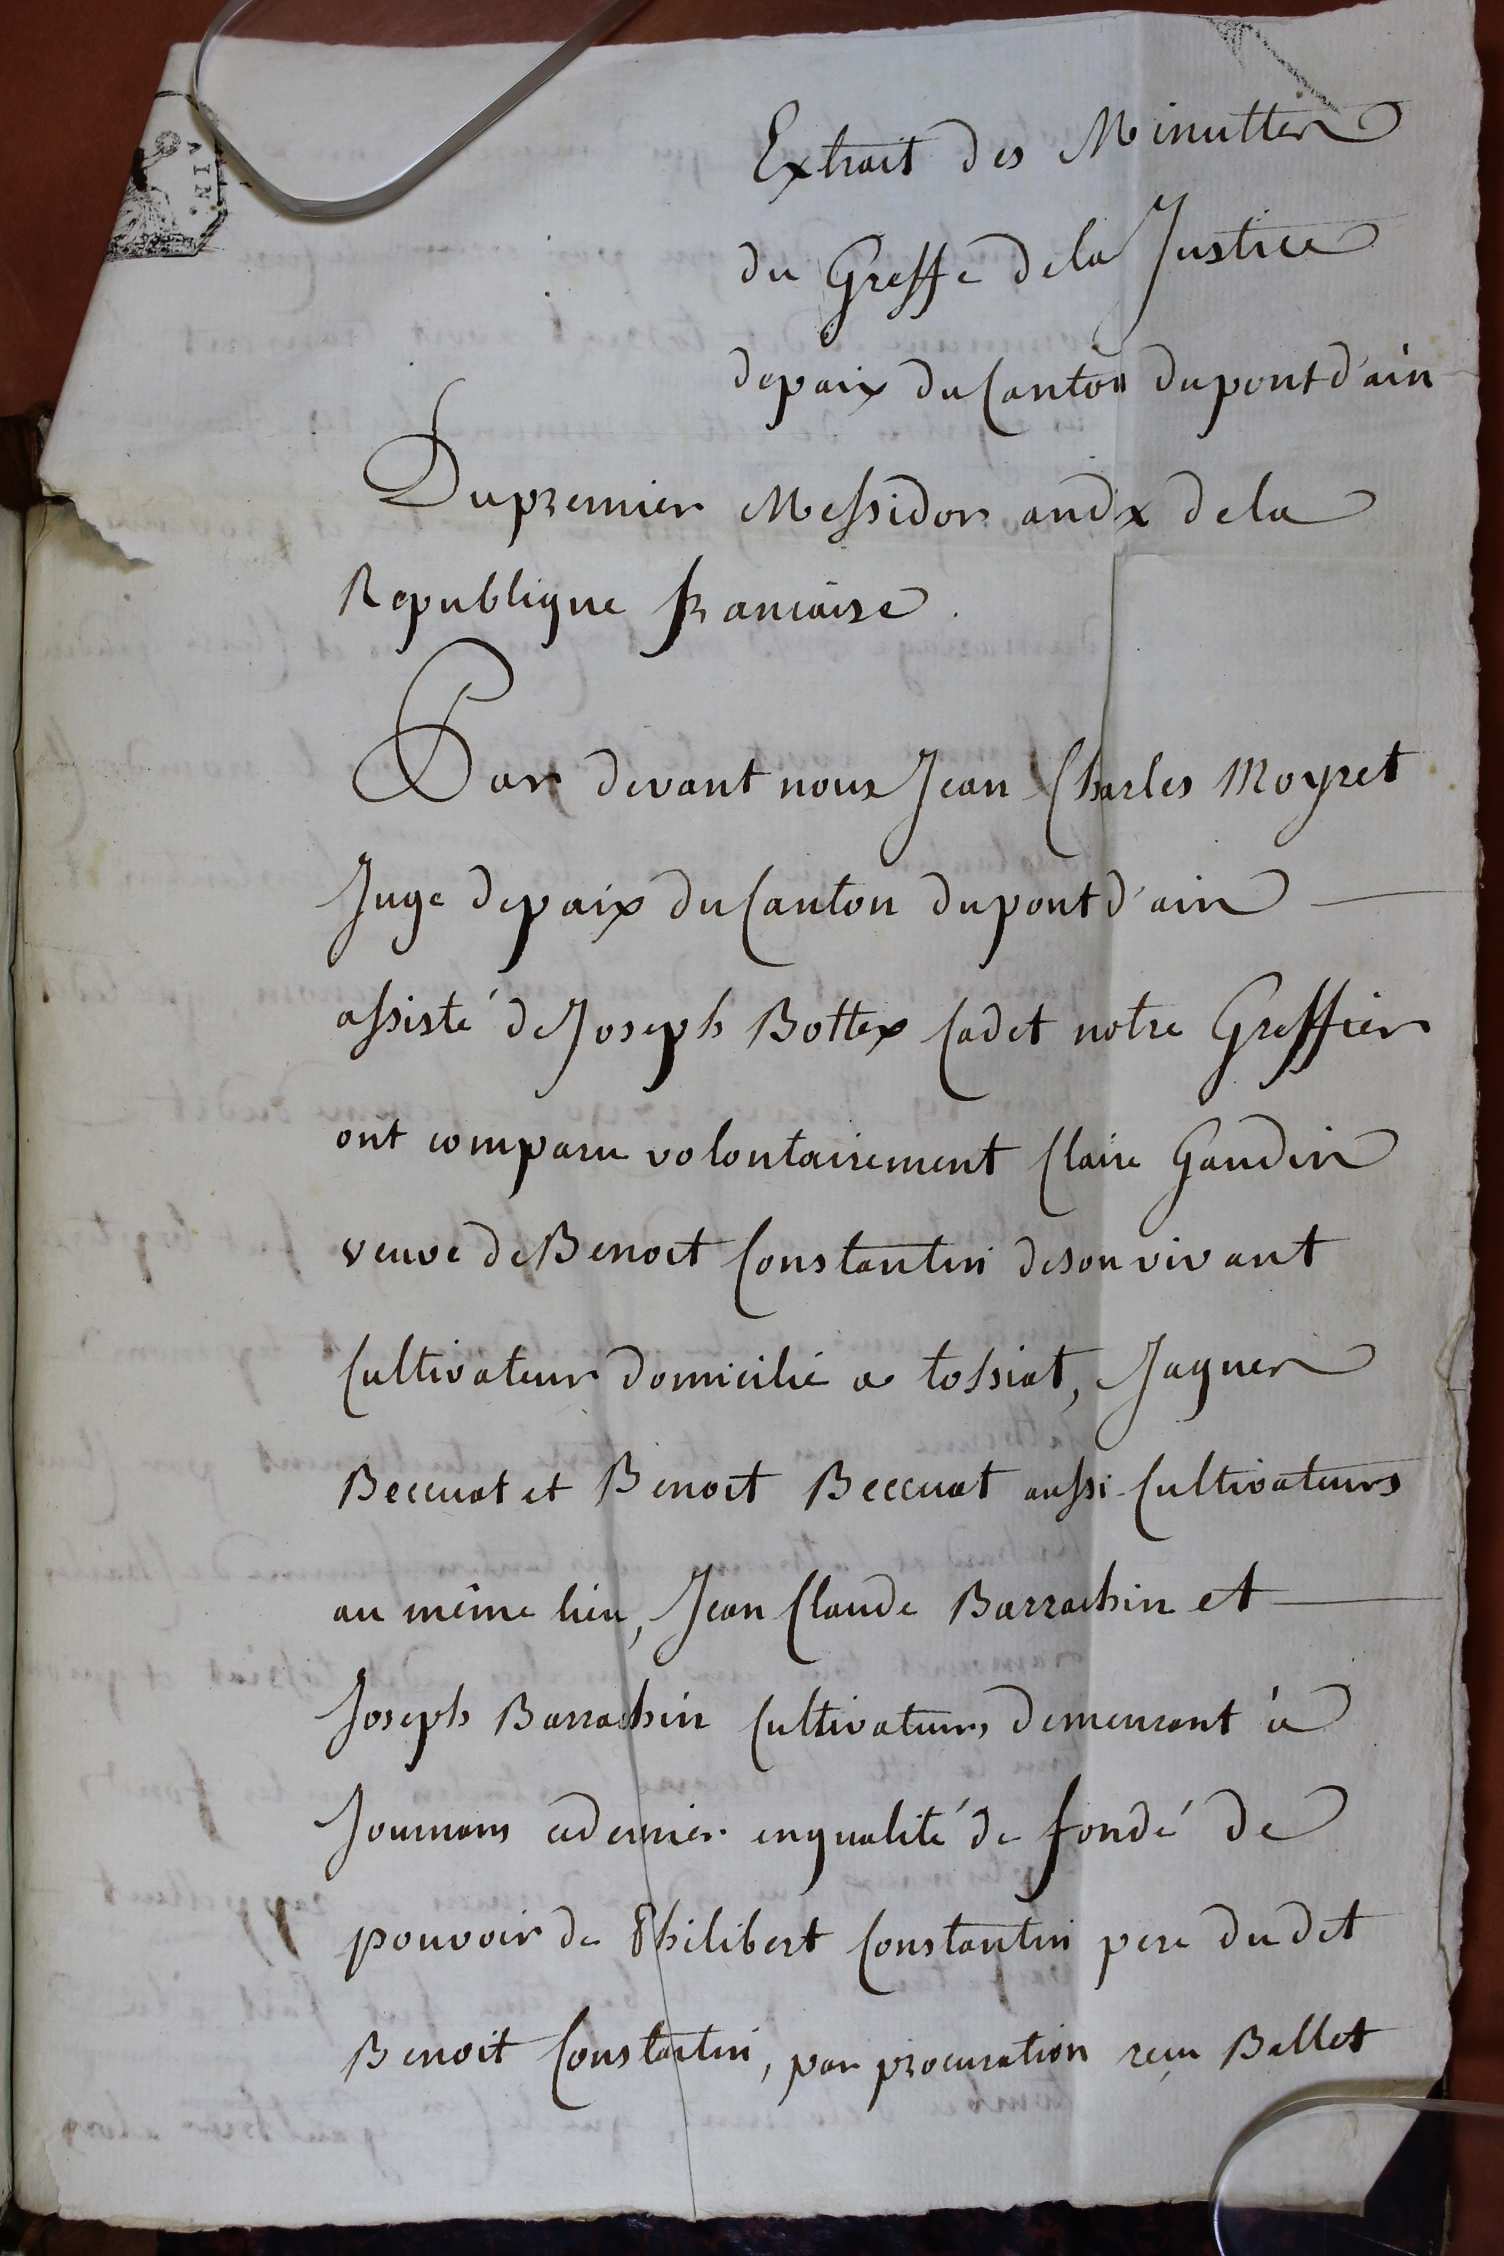 AIN.
Extrait des Minuttes
du Greffe de la Justice
de paix du Canton du pont d'ain
Du premier Messidor an dix de la
Republique francaise.
Par devant nous Jean Charles Moyret
Juge de paix du Canton du pont d'ain
assisté de Joseph Bottex Cadet notre Greffier
ont comparu volontairement Claire Gaudin
veuve de Benoit Constantin de son vivant
Cultivateur domicilié a tossiat, Jaques
Beccuat et Benoit Beccuat aussi Cultivateurs
au même lieu, Jean Claude Barrachin et
Joseph Barrachin Cultivateurs demeurant à
Journans ce dernier en qualité de fondé de
pouvoir de Philibert Constantin pere dudt
Benoit Constantin, par procuration reçu Ballet